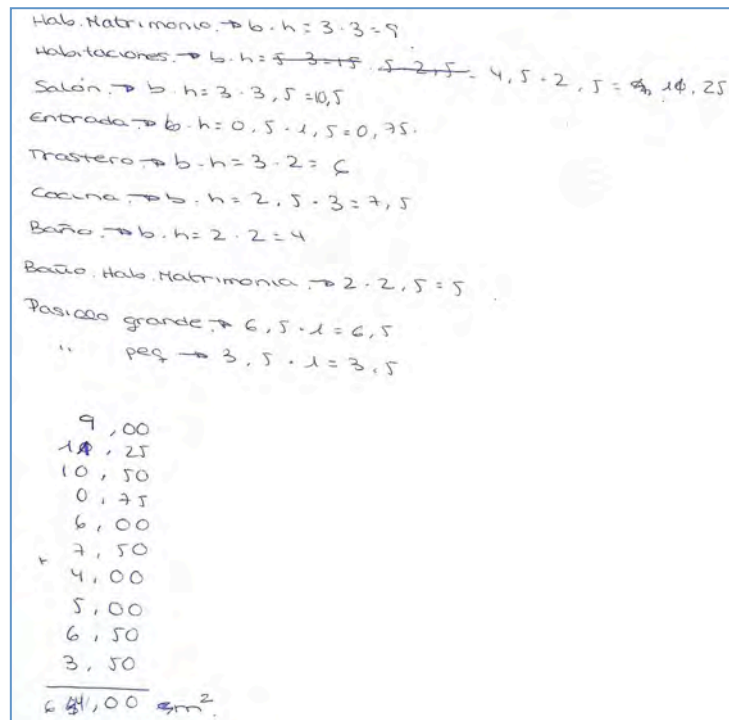 Hab. Matrimonio. → b.h = 3.3 = 9.
Habitaciones. → b.h = 5.3=15. 5.2,5 = 4,5.2,5 = 11,25
Salón. → b.h = 3.3,5 = 10,5
Entrada → b.h = 0,5.1,5 = 0,75.
Trastero → b.h = 3.2 = 6
Cocina. → b.h = 2,5.3 = 7,5
Baño. → b.h = 2.2 = 4
Baño. Hab. Matrimonia. → 2.2,5 = 5
Pasillo grande. → 6,5.1 = 6,5
" peq → 3,5.1 = 3,5
9,00
11,25
10,50
0,75
6,00
7,50
+ 4,00
5,00
6,50
3,50
64,00 m².